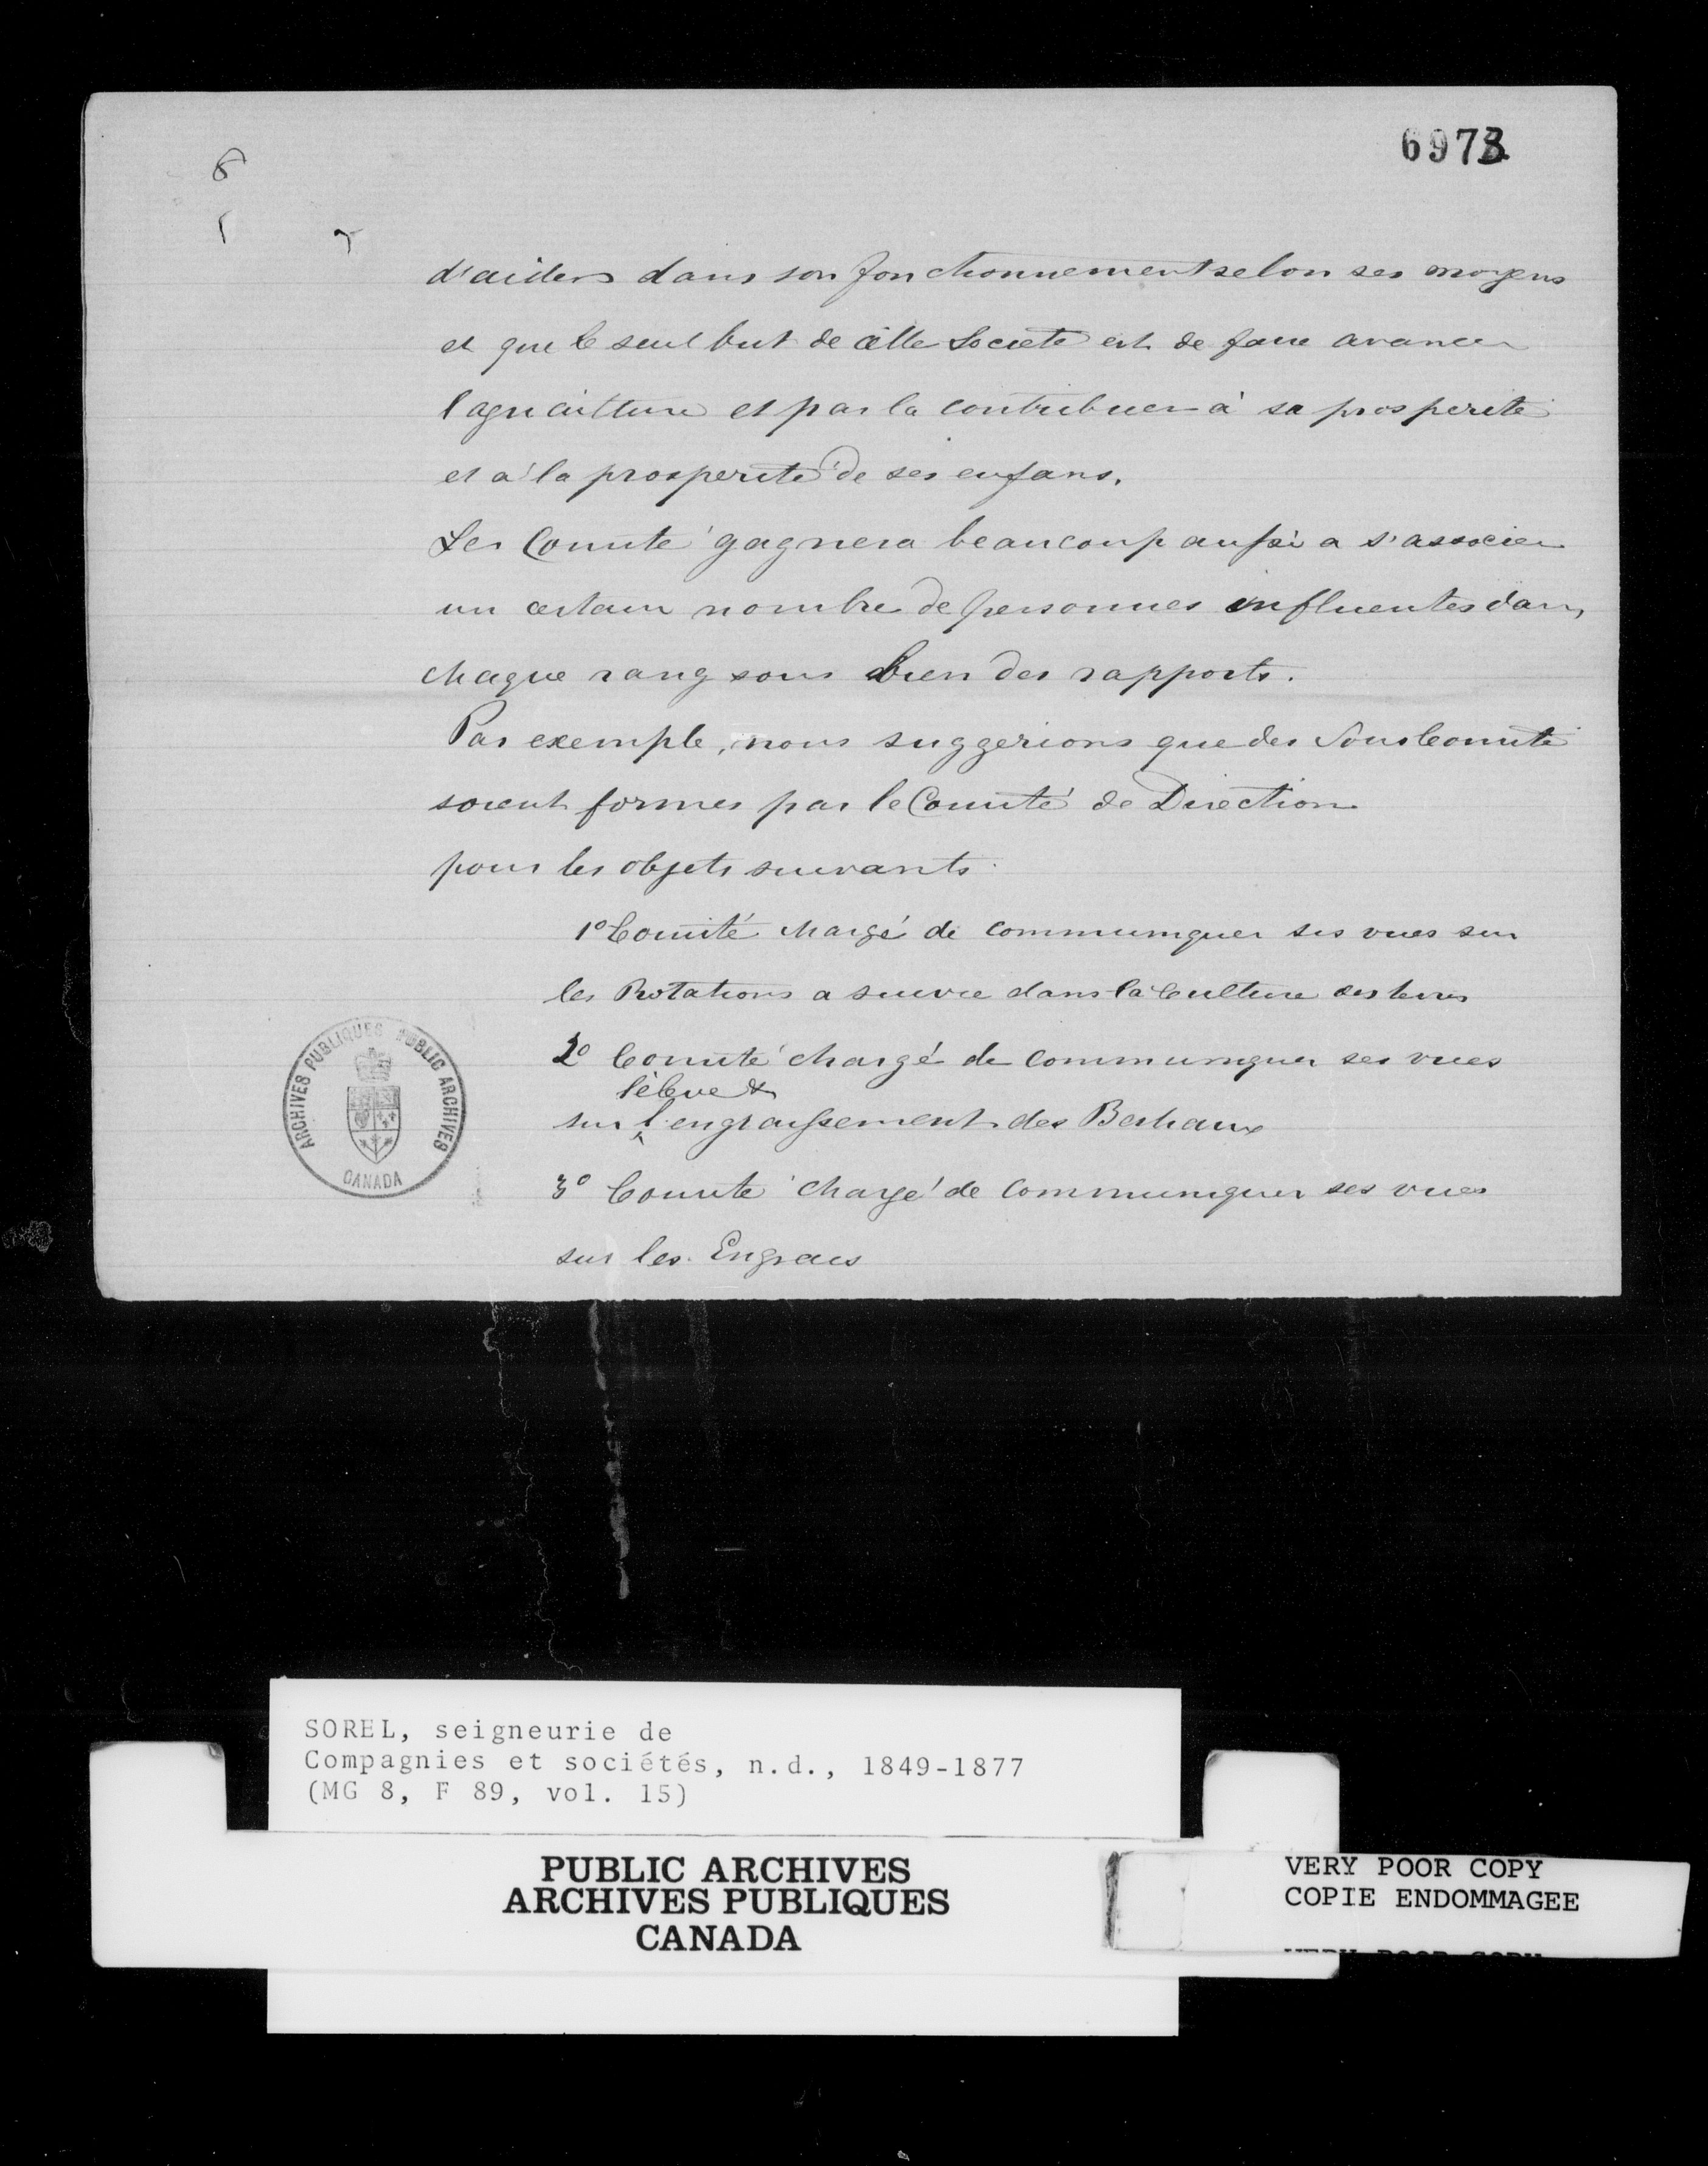 6973
8
d'aider dans son fonctionnement selon ses moyens
et que le seul but de cette Societé est de faire avancer
l'agriculture et par la contribuer à sa prosperité
et à la prosperité de ses enfans.
Les Comité gagnera beaucoup aussi a s'associer
un certain nombre de personnes influentes dans
chaque rang sous bien des rapports.
Par exemple, nous suggerions que des Sous Comité
soient formes par le Comité de Direction
pour les objets suivants
1º Comité chargé de communiquer ses vues sur
les Rotations a suivre dans la Culture des terres
2º Comité chargé de communiquer ses vues
l'éleve &
sur l'engraissement des Bestiaux
3º Comité chargé de communiquer ses vues
sur les Engrais
ARCHIVES PUBLIQUES PUBLIC ARCHIVES
CANADA
SOREL, seigneurie de
Compagnies et sociétés, n.d., 1849-1877
(MG 8, F 89, vol. 15)
PUBLIC ARCHIVES
ARCHIVES PUBLIQUES
CANADA
VERY POOR COPY
COPIE ENDOMMAGEE
VERY POOR COPY